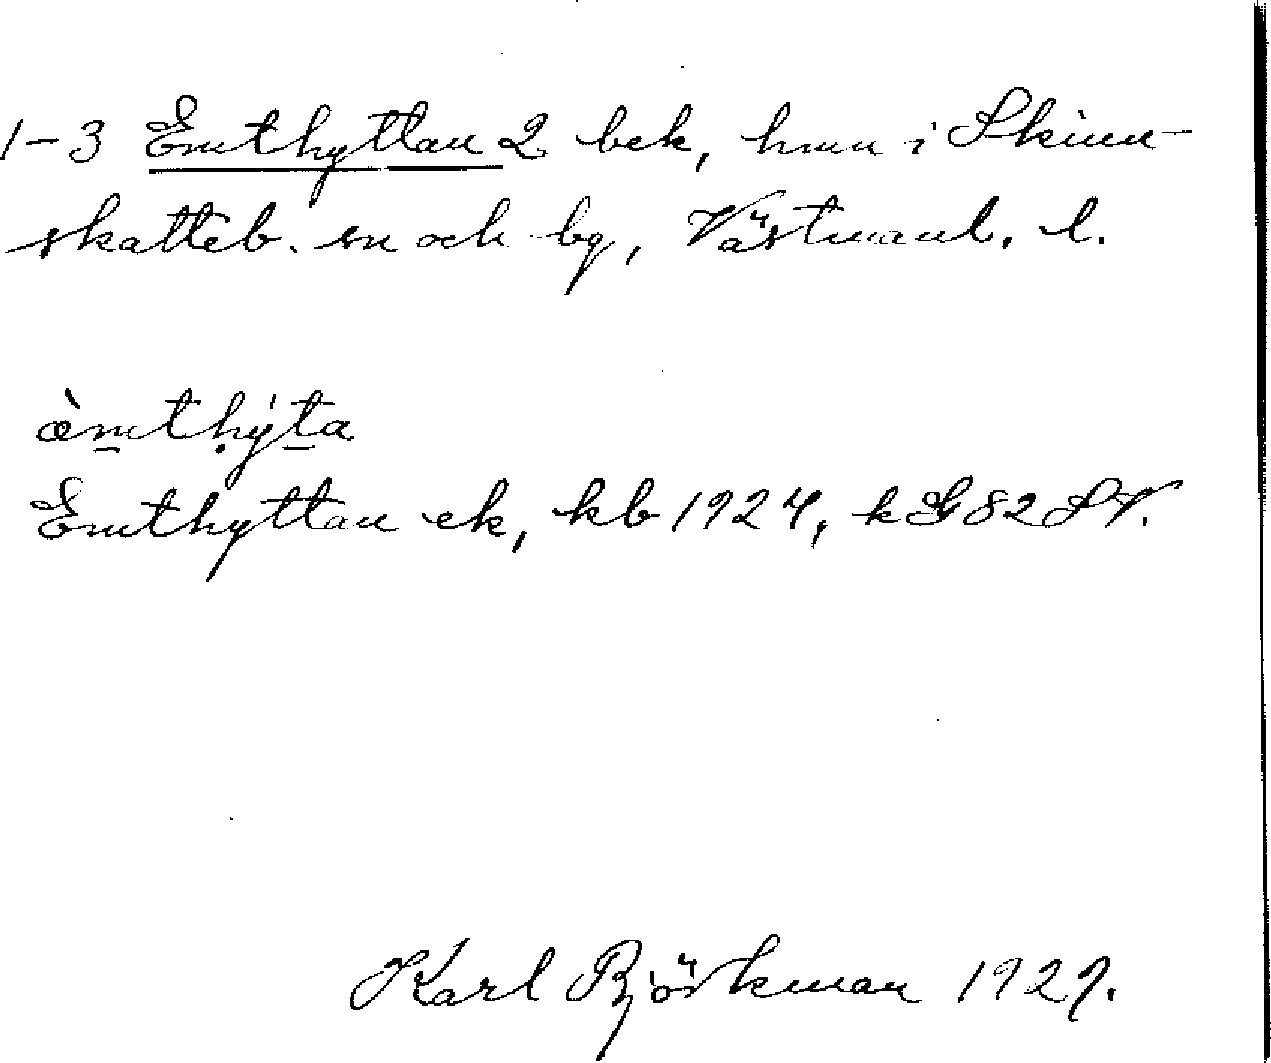 1-3 Emthyttan 2 bek, hmn i Skinn-
skatteb. sn och bg, Västmanl. l.
æ̀mthýta
Emthyttan ek, kb 1924, k G82 SV.
Karl Björkman 1929.